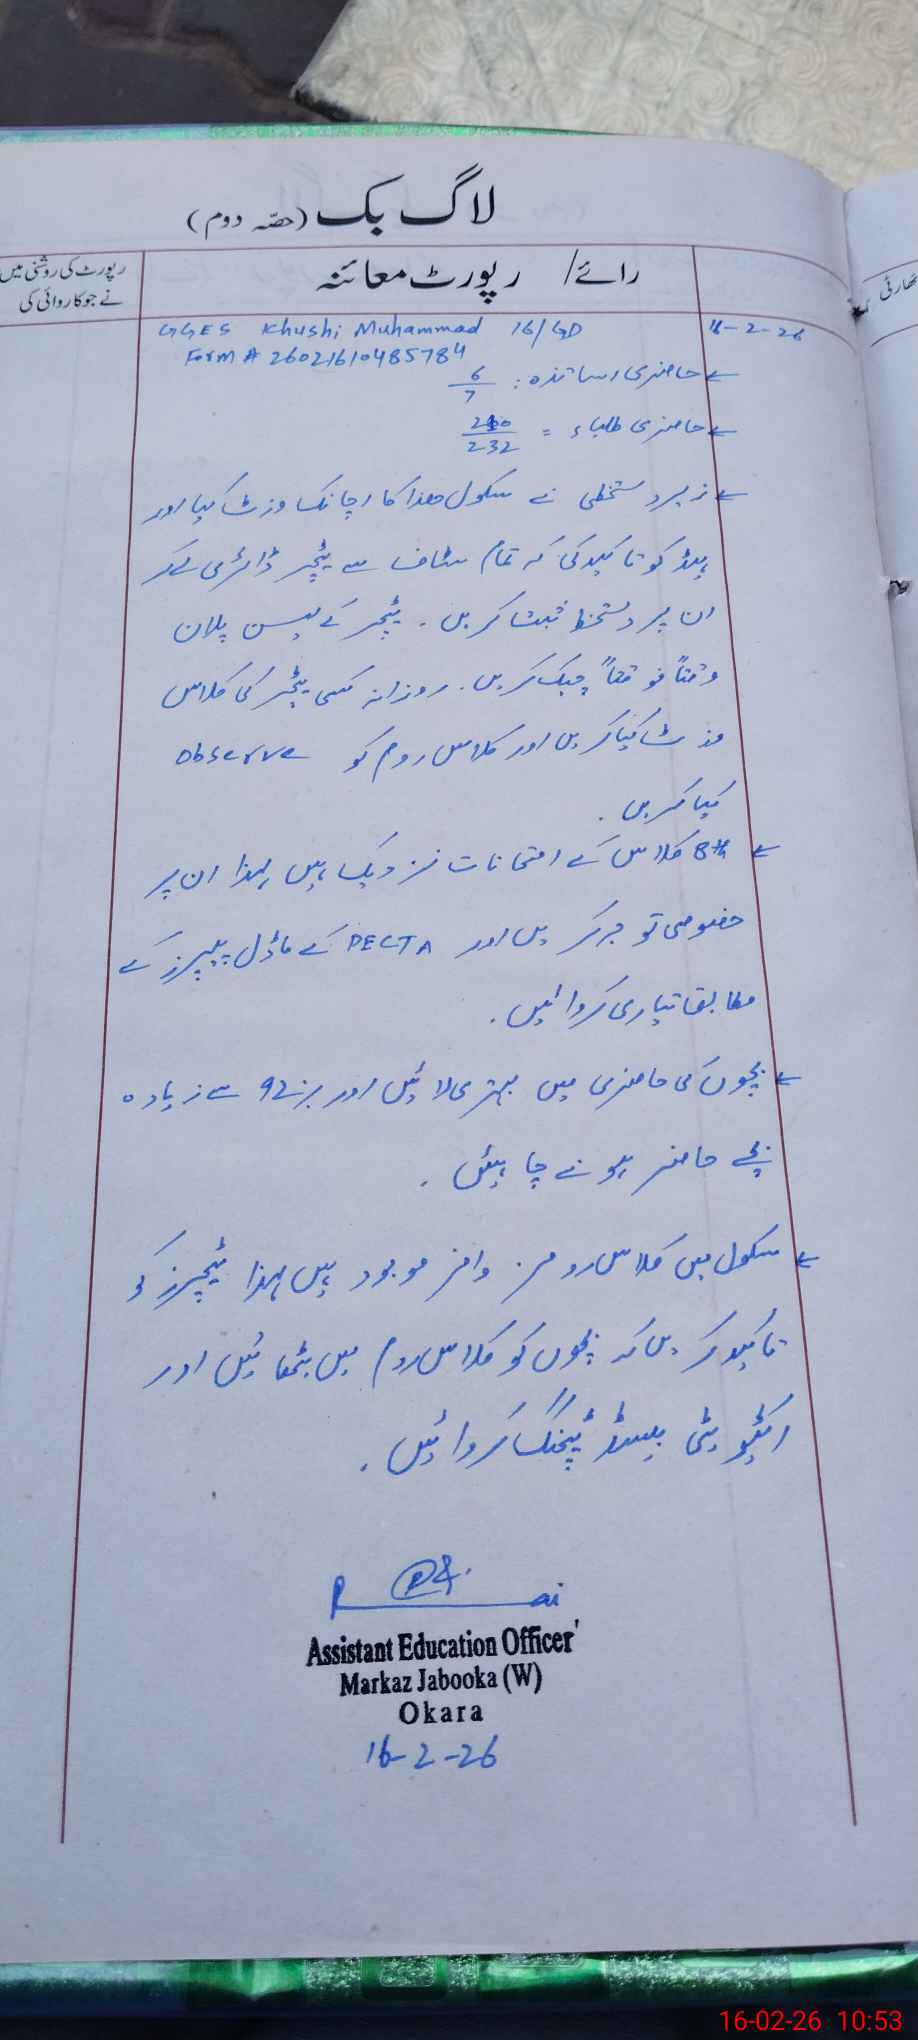 لاگ بک (حصّہ دوم)
رائے / رپورٹ معائنہ
رپورٹ کی روشنی میں
نے جو کاروائی کی
16-2-26
GGES Khushi Muhammad 16/GD
Form # 26021610485784
حاضری اساتذہ : 6/7
حاضری طلباء = 200/232
زیر دستخطی نے سکول ھذا کا اچانک وزٹ کیا اور
ہیڈ کو تاکید کی کہ تمام سٹاف سے ٹیچر ڈائری لے کر
ان پر دستخط ثبت کریں ۔ ٹیچر کے لیسن پلان
وقتاً فوقتاً چیک کریں ۔ روزانہ کسی ٹیچر کی کلاس
وزٹ کیا کریں اور کلاس روم کو Observe
کیا کریں ۔
8th کلاس کے امتحانات نزدیک ہیں لہذا ان پر
خصوصی توجہ کریں اور PECTA کے ماڈل پیپرز کے
مطابق تیاری کروائیں ۔
بچوں کی حاضری میں بہتری لائیں اور 92٪ سے زیادہ
بچے حاضر ہونے چاہیئں ۔
سکول میں کلاس رومز وافر موجود ہیں لہذا ٹیچرز کو
تاکید کریں کہ بچوں کو کلاس روم میں بٹھائیں اور
ایکٹیویٹی بیسڈ ٹیچنگ کروائیں ۔
Assistant Education Officer
Markaz Jabooka (W)
Okara
16-2-26
16-02-26 10:53